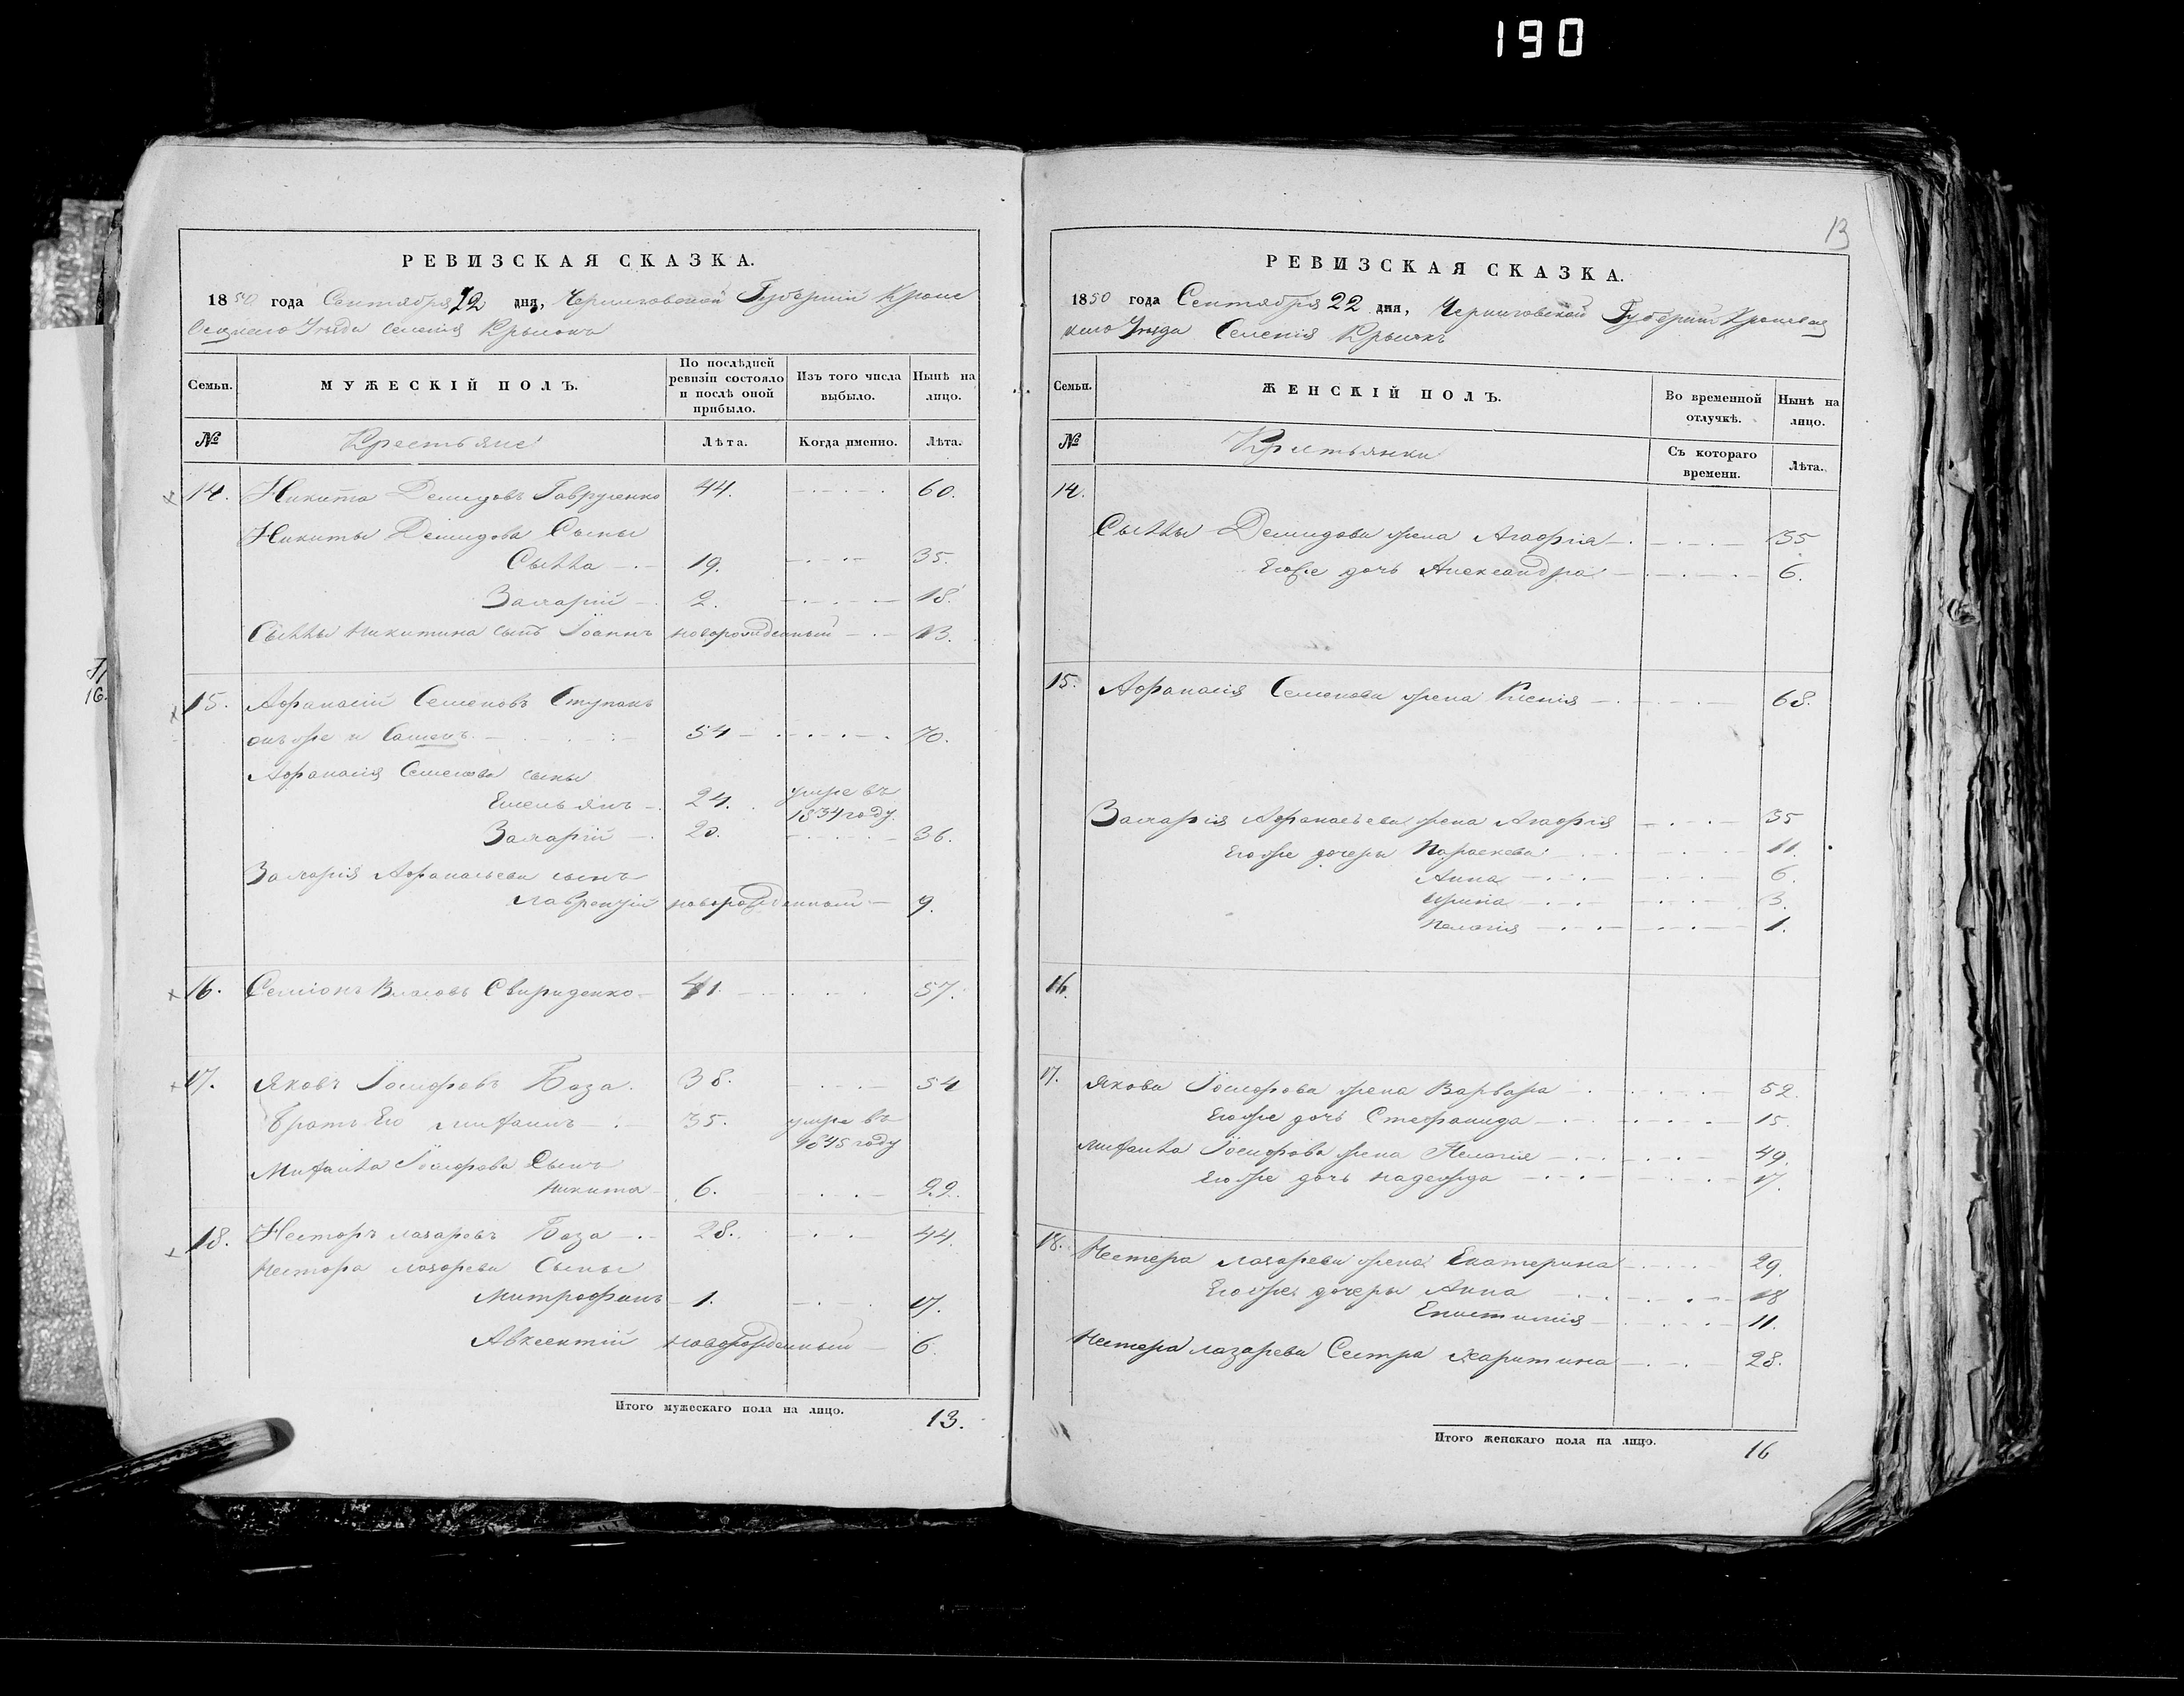 190
РЕВИЗСКАЯ СКАЗКА.
1850 года Сентября 22 дня, Черниговской Губерніи Кроле
вецкаго Уезда селенія
Семьи.
МУЖЕСКІЙ ПОЛЪ.
По послѣдней ревизіи состояло и послѣ оной прибыло.
Изъ того числа выбыло.
Нынѣ на лицо.
№ Крестьяне Лѣта. Когда именно. Лѣта.
14. Никита Демидовъ Гавруленко 44. 60.
Никиты Демидова Сыны
Савва 19. 35.
Захарій 2. 18.
Саввы Никитина сынъ Іоаннъ новорожденный 13.
15. Афанасій Семеновъ Ступакъ
онъ же и 54 70.
Афанасія Семенова сыны
Емельянъ 24. умре въ
1834 году.
Захарій 20. 36.
Захарія Афанасьева сынъ
Лаврентій новорожденный 9.
16. Семіонъ Власовъ Свириденко 41. 57.
17. Яковъ Іосифовъ База. 38. 54
Братъ Его 35. умре въ
1845 году
Іосифова Сынъ
Никита 6. 22.
18. Несторъ Лазаревъ База 28. 44.
Нестора Лазарева Сыны
Митрофанъ 1. 17.
Авксентій новорожденный 6.
Итого мужескаго пола на лицо. 13.
13
РЕВИЗСКАЯ СКАЗКА.
1850 года Сентября 22 дня, Черниговской Губерніи Кролевец
каго Уезда Селенія
Семьи.
ЖЕНСКІЙ ПОЛЪ.
Во временной отлучкѣ.
Нынѣ на лицо.
№ Крестьянки Съ котораго времени. Лѣта.
14.
Саввы Демидова жена Агафія 35
Его же дочь Александра 6.
15. Афанасія Семенова жена Ксенія 68.
Захарія Афанасьева жена Агафія 35
Его же дочери Параскева 11.
Анна 6.
Ирина 3.
Пелагія 1.
16.
17. Якова Іосифова жена Варвара 52.
Его же дочь Стефанида 15.
Іосифова жена Пелагія 49.
Его же дочь Надежда 17.
18. Нестера Лазарева жена Екатерина 29.
Его же дочери Анна 18
Епистимія 11.
Нестера Лазарева Сестра Харитина 28.
Итого женскаго пола на лицо. 16